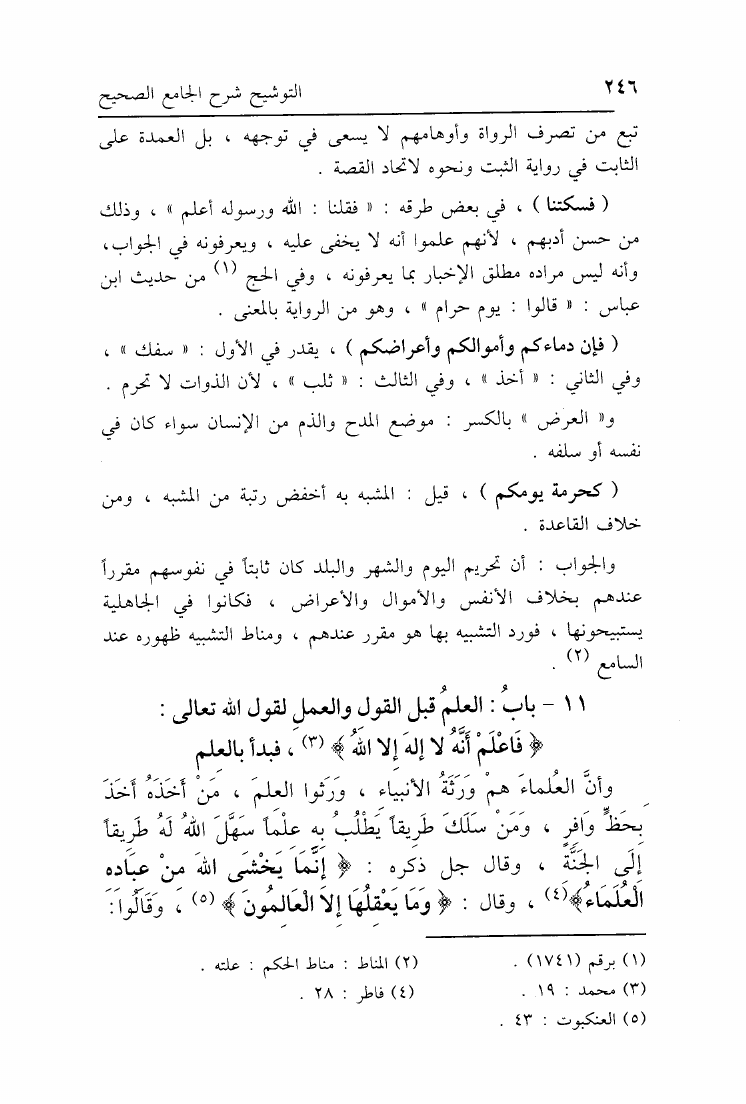 ٢٤٦
التوشيح شرح الجامع الصحيح
تبع من تصرف الرواة وأوهامهم لا يسعى في توجهه ، بل العمدة على
الثابت في رواية الثبت ونحوه لاتحاد القصة .
( فسكتنا ) ، في بعض طرقه : « فقلنا : الله ورسوله أعلم » ، وذلك
من حسن أدبهم ، لأنهم علموا أنه لا يخفى عليه ، ويعرفونه في الجواب،
وأنه ليس مراده مطلق الإخبار بما يعرفونه ، وفي الحج (١) من حديث ابن
عباس : « قالوا : يوم حرام » ، وهو من الرواية بالمعنى .
( فإن دماءكم وأموالكم وأعراضكم ) ، يقدر في الأول : « سفك » ،
وفي الثاني : « أخذ » ، وفي الثالث : « ثلب » ، لأن الذوات لا تحرم .
و« العرض » بالكسر : موضع المدح والذم من الإنسان سواء كان في
نفسه أو سلفه .
( كحرمة يومكم ) ، قيل : المشبه به أخفض رتبة من المشبه ، ومن
خلاف القاعدة .
والجواب : أن تحريم اليوم والشهر والبلد كان ثابتاً في نفوسهم مقرراً
عندهم بخلاف الأنفس والأموال والأعراض ، فكانوا في الجاهلية
يستبيحونها ، فورد التشبيه بها هو مقرر عندهم ، ومناط التشبيه ظهوره عند
السامع (٢) .
١١ - بابُ : العلمُ قبل القول والعملِ لقول الله تعالى :
﴿ فَاعْلَمْ أَنَّهُ لا إلهَ إلا اللهُ ﴾ (٣) ، فبدأ بالعلم
وأنَّ العُلماءَ همْ وَرَثَةُ الأنبياءِ ، وَرَثوا العلمَ ، مَنْ أَخَذَهُ أَخَذَ
بِحَظٍّ وَافِرٍ ، وَمَنْ سَلَكَ طَرِيقاً يَطْلُبُ بِهِ عِلْماً سَهَّلَ اللهُ لَهُ طَرِيقاً
إِلَى الجَنَّةِ ، وقال جل ذكره : ﴿ إِنَّمَا يَخْشَى اللهَ مِنْ عِبَادِهِ
الْعُلَمَاءُ﴾(٤) ، وقال : ﴿ وَمَا يَعْقِلُهَا إِلاَ الْعَالِمُونَ ﴾ (٥) ، وَقَالُوا:
(١) برقم (١٧٤١) .
(٢) المناط : مناط الحكم : علته .
(٣) محمد : ١٩ .
(٤) فاطر : ٢٨ .
(٥) العنكبوت : ٤٣ .